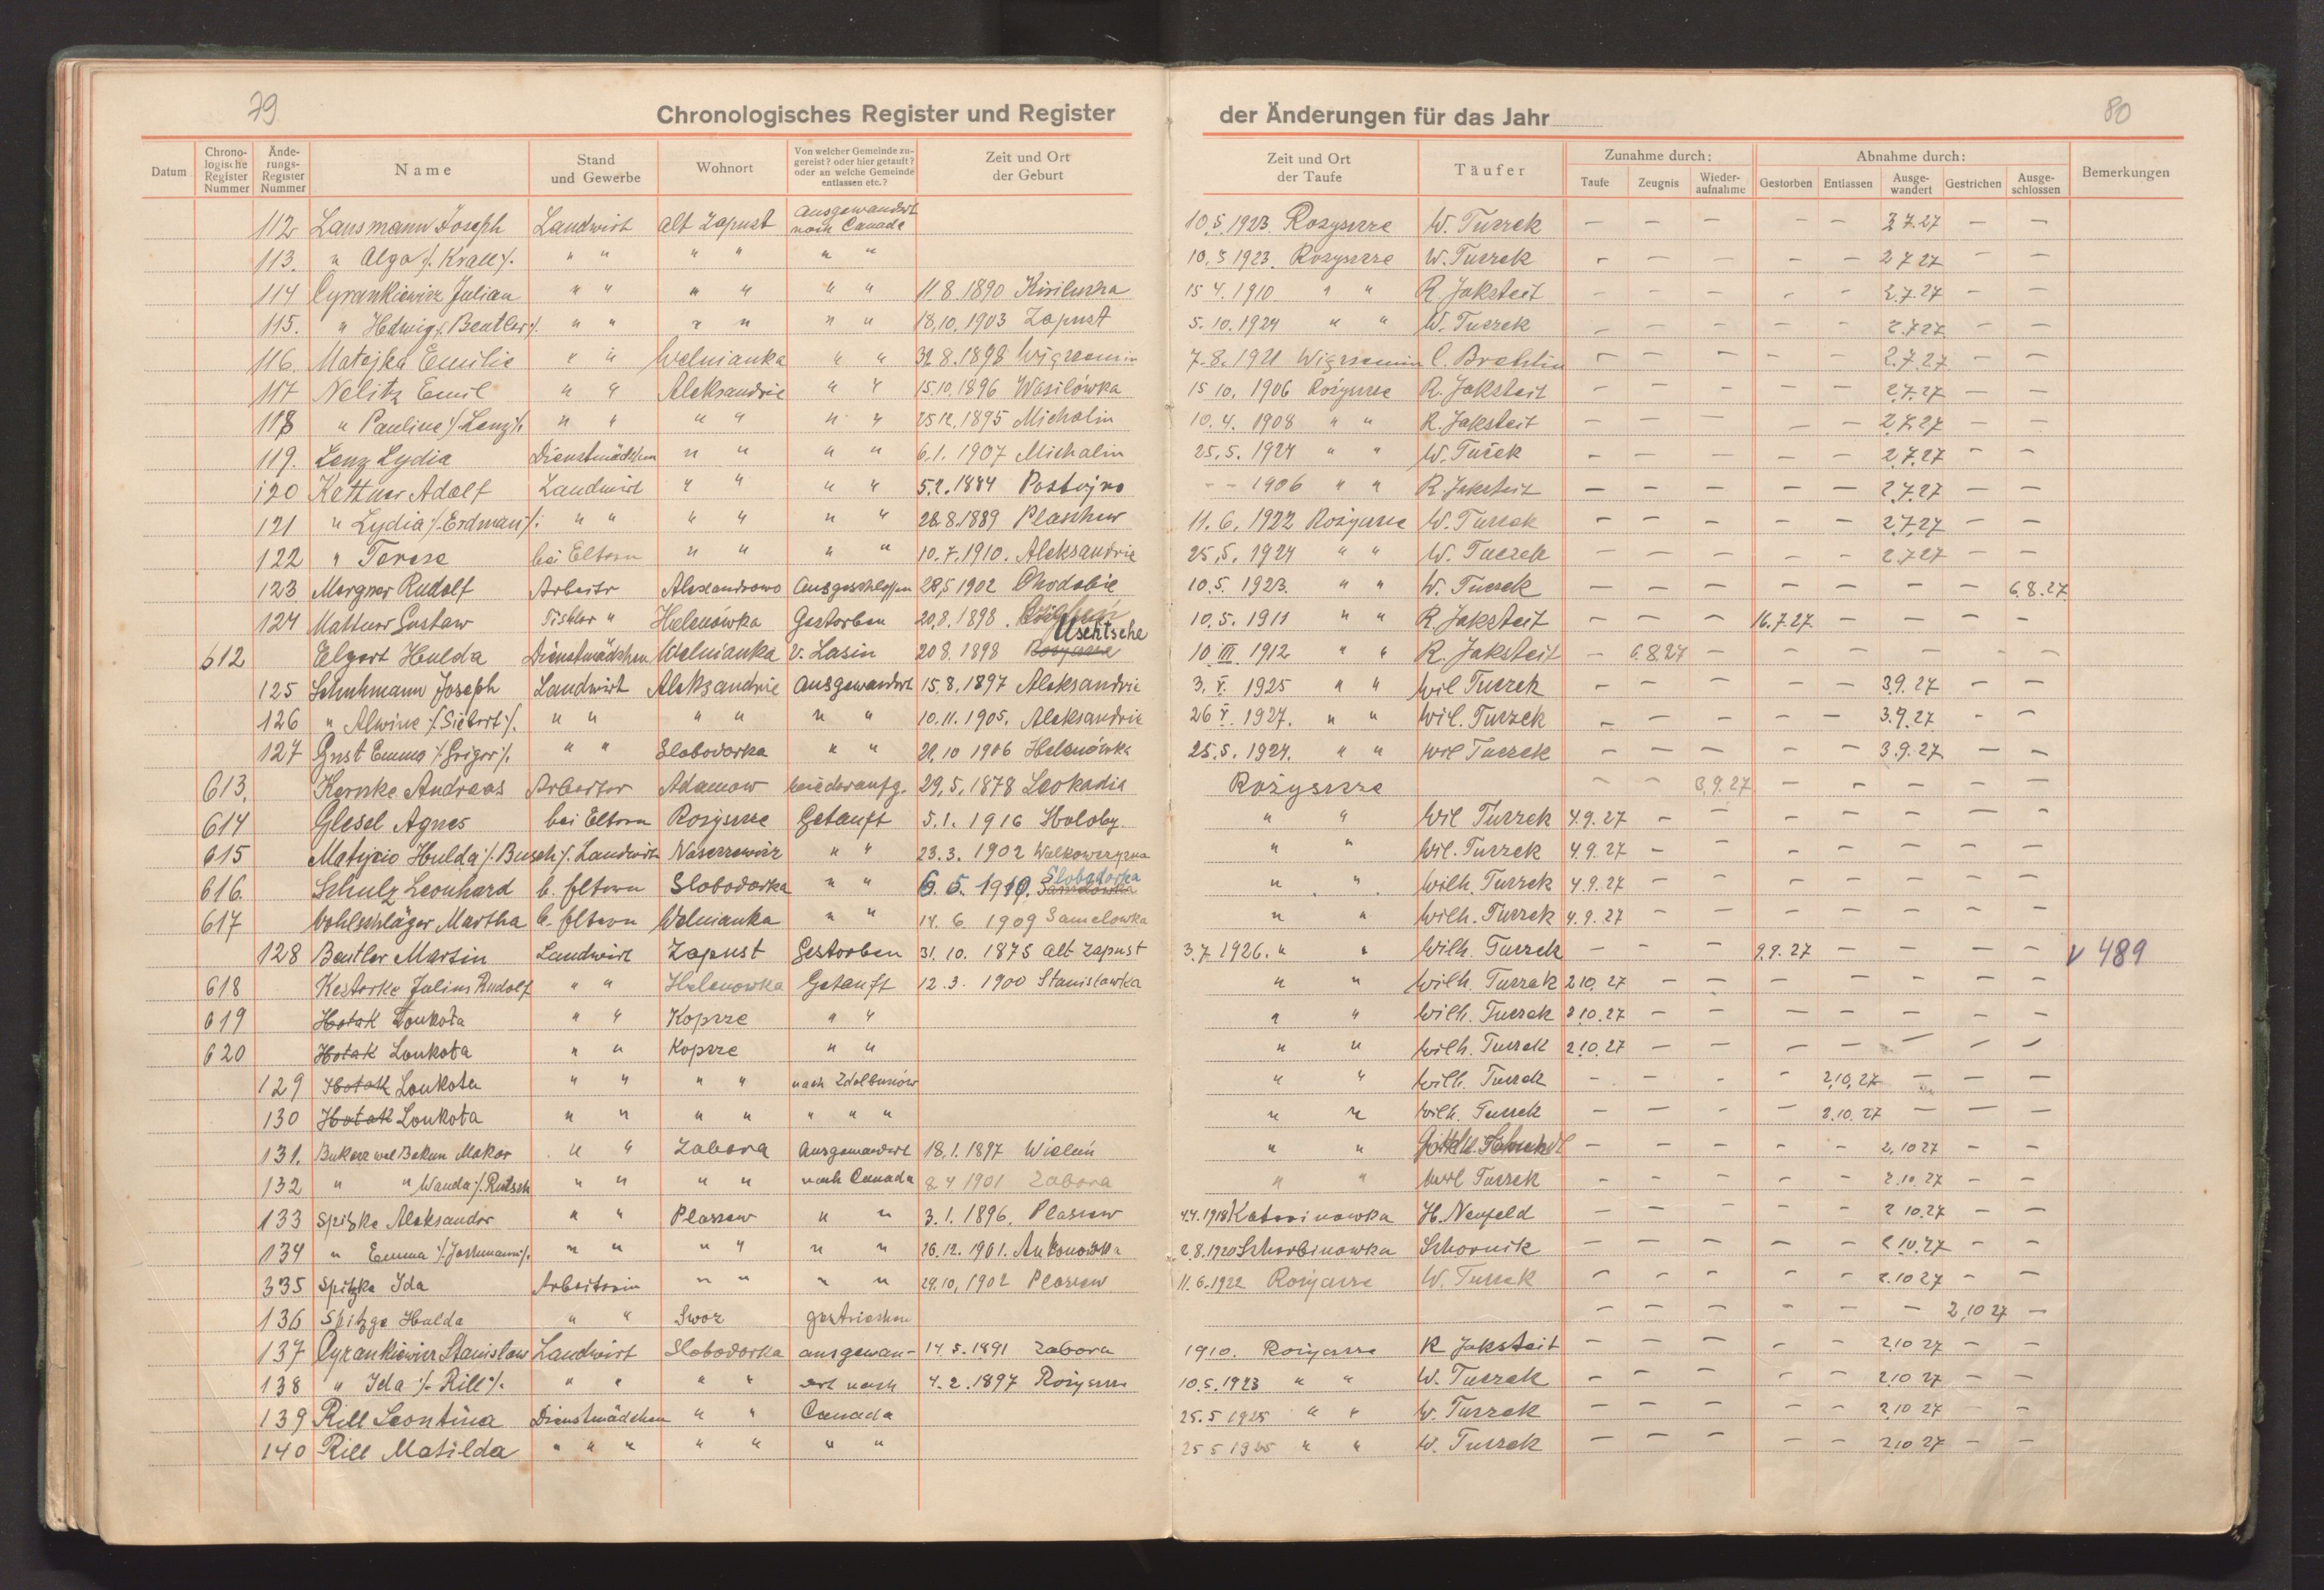 79
Chronologisches Register und Register der Änderungen für das Jahr
80
Datum
Chrono-logische Register Nummer
Ände-rungs-Register Nummer
Name
Stand und Gewerbe
Wohnort
Von welcher Gemeinde zu-gereist? oder hier getauft? oder an welche Gemeinde entlassen etc.?
Zeit und Ort der Geburt
Zeit und Ort der Taufe
Täufer
Zunahme durch:
Taufe
Zeugnis
Wieder-aufnahme
Abnahme durch:
Gestorben
Entlassen
Ausge-wandert
Gestrichen
Ausge-schlossen
Bemerkungen
112 Lausmann Joseph Landwirt Alt Zapust ausgewandrt nach Canada 10.5.1923 Rozyszcze W. Tuczek — — — — — 2.7.27 — —
113. " Alga /. Krall /. " " " " " " 10.5.1923. Rozyszcze W. Tuczek — — — — — 2.7.27 — —
114 Cyrankiewicz Julian " " " " " " 11.8.1890 15.4.1910 " " R. Jaksteit — — — — — 2.7.27 — —
115. " Hedwig /. Beutler /. " " " " " " 18.10.1903 Zapust 5.10.1924 " " W. Tuczek — — — — — 2.7.27 — —
116. Matejka Emilie " " Welnianka " " 8.1898 7.8.1921 — — — — — 2.7.27 — —
117 Nelitz Emil " " Aleksandrie " " 15.10.1896 Wasilówka 15.10.1906 Rożyszcze R. Jaksteit — — — — — 2.7.27 — —
118 " Pauline /. Lenz /. " " " " " " 25.12.1895 Michalin 10.4.1908 " " R. Jaksteit — — — — — 2.7.27 — —
119. Lenz Lydia Dienstmädchen " " " " 6.1.1907 Michalin 25.5.1924 " " W. Tuczek — — — — — 2.7.27 — —
120 Kettner Adolf Landwirt " " " " 5.2.1884 Postojno - - 1906 " " R. Jaksteit — — — — — 2.7.27 — —
121 " Lydia /. Erdman /. " " " " " " 28.8.1889 Plaschew 11.6.1922 Rożyszcze W. Tuczek — — — — — 2.7.27 — —
122 " Terese bei Eltern " " " " 10.7.1910. Aleksandrie 25.5.1924 " " W. Tuczek — — — — — 2.7.27 — —
123 Mergner Rudolf Arbeiter Alexandrowo Ausgeschlossen 28.5.1902 10.5.1923. " " W. Tuczek — — — — — — — 6.8.27
124 Mattner Gustaw Tischler " Helenówka Gestorben 20.8.1898. 10.5.1911 " " R. Jaksteit — — — 16.7.27. — — — —
612 Elgert Hulda Dienstmädchen Welnianka v. Lasin 20.8.1898 Rozyszcze Uschtsche 10.III.1912 " " R. Jaksteit — 6.8.27 — — — — — —
125 Schuhmann Joseph Landwirt Aleksandrie Ausgewandrt 15.8.1897 Aleksandrie 3.V.1925 " " Wil Tuczek — — — — — 3.9.27 — —
126 " Alwine /. Siebert /. " " " " " " 10.11.1905. Aleksandrie 26.V.1927. " " Wil. Tuczek — — — — — 3.9.27 — —
127 Gust Emma /. Griger /. " " Slobodarka " " 21.10.1906 Helenówka 25.5.1924. " " Wil Tuczek — — — — — 3.9.27 — —
613. Andreas Arbeiter Adamow wiederaufg. 29.5.1878 Leokadia Rożyszcze — — 3.9.27 — — — — —
614 Glesel Agnes bei Eltern Rożyszcze Getauft 5.1.1916 Holoby " " Wil Tuczek 4.9.27 — — — — — — —
615 Hulda /. Busch /. Landwirt " " 23.3.1902 " " Wil. Tuczek 4.9.27 — — — — — — —
616. Schulz Leonhard b. Eltern Slobodarka " " 6.5.1910. Slobodarka " " Wilh. Tuczek 4.9.27 — — — — — — —
617 Wohlschläger Martha b. Eltern Welnianka " " 14.6.1909 Samelowka " " Wilh. Tuczek 4.9.27 — — — — — — —
128 Beutler Martin Landwirt Zapust Gestorben 31.10.1875 Alt Zapust 3.7.1926. " " Wilh. Tuczek — — — 9.9.27 — — — — v 489
618 Kesterke Julius Rudolf " " Helenowka Getauft 12.3.1900 Stanislawka " " Wilh. Tuczek 2.10.27 — — — — — — —
619 Hotak Loukota " " Kopcze " " " " Wilh. Tuczek 2.10.27 — — — — — — —
620 Hotak Loukota " " Kopcze " " " " Wilh. Tuczek 2.10.27 — — — — — — —
129 Hotak Loukota " " " " nach Zdolbunów " " Wilh. Tuczek — — — — 2.10.27 — — —
130 Hotak Loukota " " " " " " " " " Wilh. Tuczek — — — — 2.10.27 — — —
131. Makar " " Zabora Ausgewandrt 18.1.1897 " " — — — — — 2.10.27 — —
132 " " Wanda /. Rutsch " " " " nach Canada 8.4.1901 Zabora " " Wil Tuczek — — — — — 2.10.27 — —
133 Spitzke Aleksander " " Plaszew " " 3.1.1896. Plaszew 4.4.1918 Katerinowka H. Neufeld — — — — — 2.10.27 — —
134 " Emma /. Jeschmann /. " " " " " " 26.12.1901. Antonówka 2.8.1920 Scherbinowka Schornik — — — — — 2.10.27 — —
335 Spitzke Ida Arbeiterin " " " " 29.10.1902 Plaszew 11.6.1922 Rozyszcze W. Tuczek — — — — — 2.10.27 — —
136 Spitzge Hulda " " Swoz gestrichen — — — — — — 2.10.27 —
137 Cyrankiewicz Stanislaw Landwirt Slobodarka ausgewan- 14.5.1891 Zabora 1910. Rozyszcze R Jaksteit — — — — — 2.10.27 — —
138 " Ida /. Rill /. " " " " ert nach 4.2.1897 Rożyszcze 10.5.1923 " " W. Tuczek — — — — — 2.10.27 — —
139 Rill Leontina Dienstmädchen " " Canada 25.5.1925 " " W. Tuczek — — — — — 2.10.27 — —
140 Rill Matilda " " " " " " " 25.5.1925 " " W. Tuczek — — — — — 2.10.27 — —